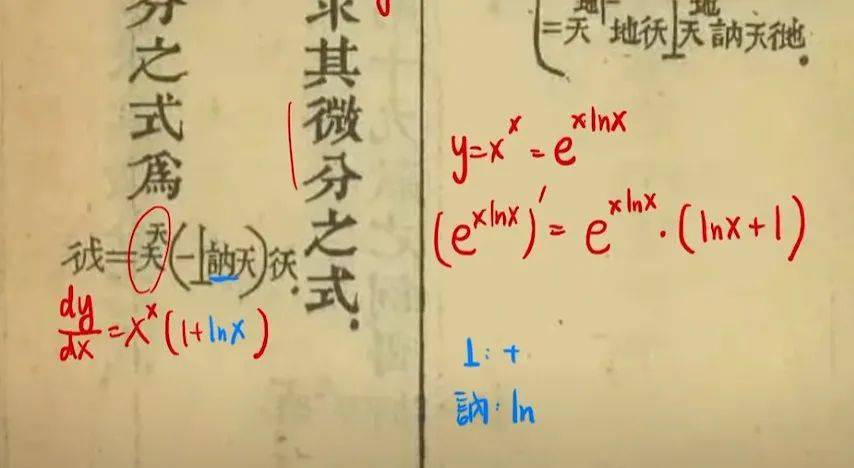 =天 地彳天⊥天訥天彳地.
y=x^x = e^{x ln x}
(e^{x ln x})' = e^{x ln x} · (ln x + 1)
⊥: +
訥: ln
求其微分之式.
分之式爲
=天^天(一⊥訥天)彳天.
dy/dx = x^x (1 + ln x)